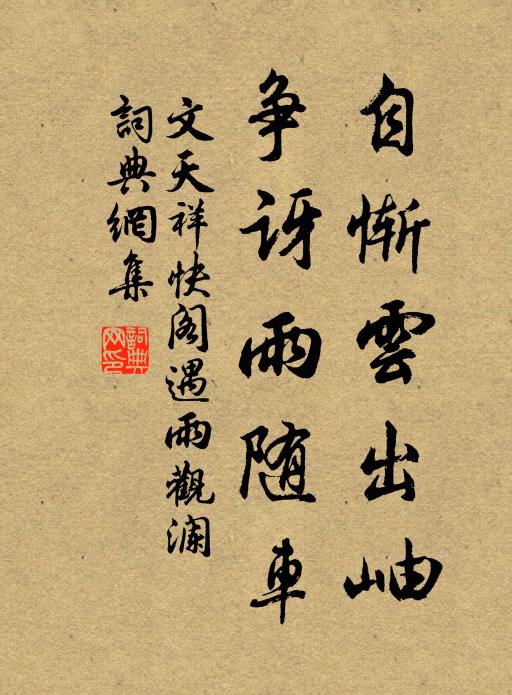 自惭雲出岫
争讶雨随車
文天祥快阁遇雨觀澜
詞典網集
詞典網印